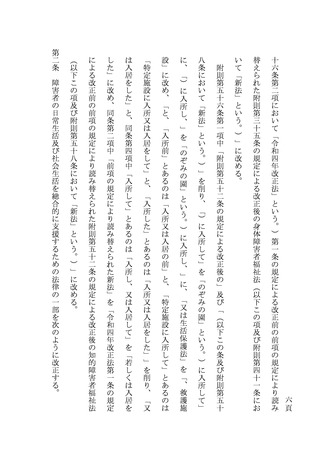 六頁
十六条第二項において「令和四年改正法」という。）第一条の規定による改正前の前項の規定により読み
替えられた附則第三十五条の規定による改正後の身体障害者福祉法（以下この項及び附則第四十一条にお
いて「新法」という。）」に改める。
附則第五十六条第一項中「附則第五十二条の規定による改正後の」及び「（以下この条及び附則第五十
八条において「新法」という。）」を削り、「）に入所して」を「のぞみの園」という。）に入所して」
に、「）に入所し、」を「のぞみの園」という。）に入所し、」に、「又は生活保護法」を「、救護施
設」に改め、「と、「入所前」とあるのは「入所又は入居の前」と、「特定施設に入所して」とあるのは
「特定施設に入所又は入居をして」と、「入所した」とあるのは「入所又は入居をした」」を削り、「又
は入居をした」と、同条第四項中「入所して」とあるのは「入所し、又は入居して」を「若しくは入居を
した」に改め、同条第二項中「前項の規定により読み替えられた新法」を「令和四年改正法第一条の規定
による改正前の前項の規定により読み替えられた附則第五十二条の規定による改正後の知的障害者福祉法
（以下この項及び附則第五十八条において「新法」という。）」に改める。
第二条　障害者の日常生活及び社会生活を総合的に支援するための法律の一部を次のように改正する。